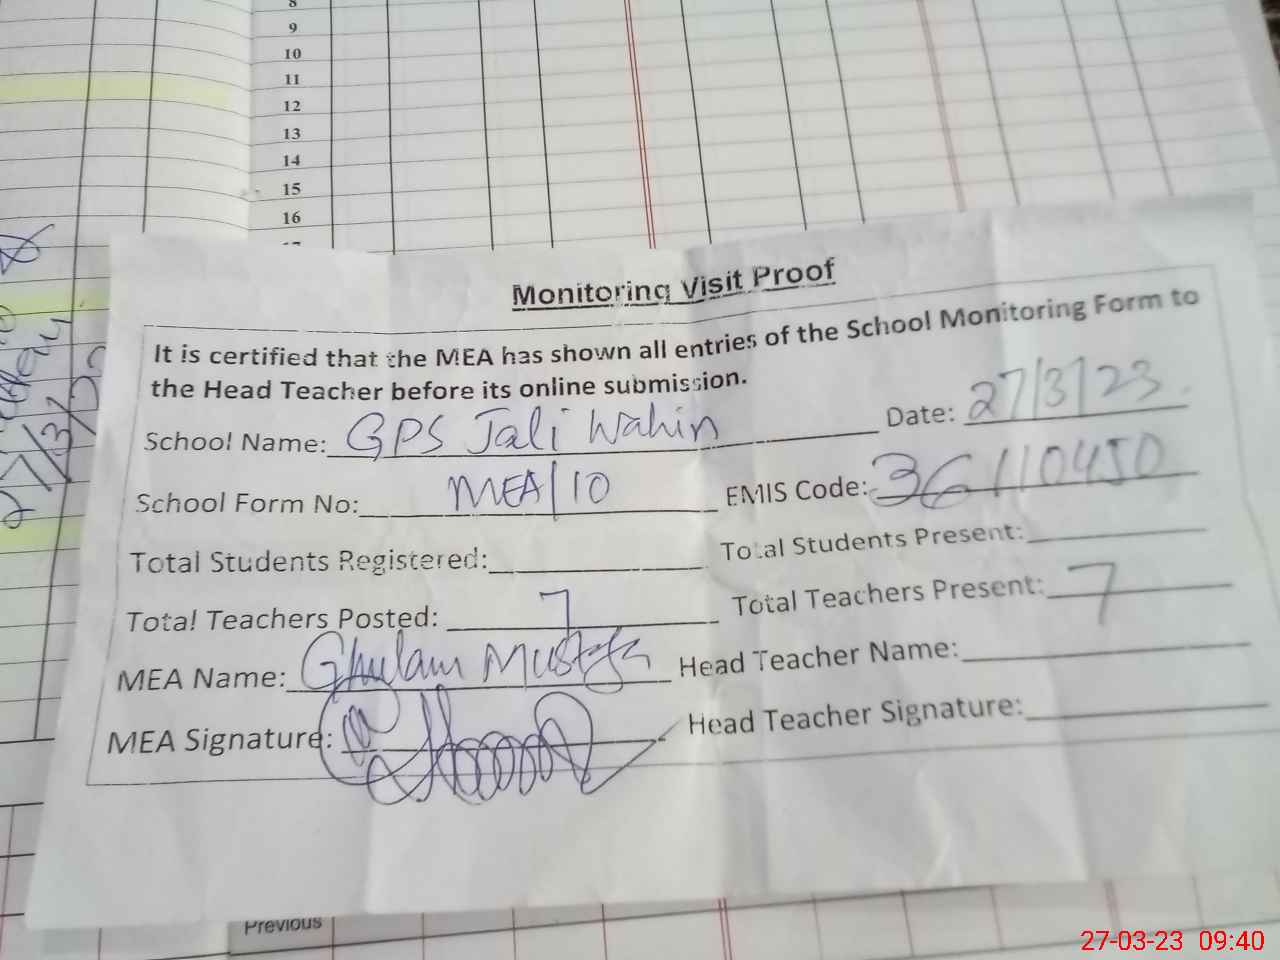 8
9
10
11
12
13
14
15
16
Monitoring Visit Proof
It is certified that the MEA has shown all entries of the School Monitoring Form to
the Head Teacher before its online submission.
School Name: GPS Jali Wahin Date: 27/3/23.
School Form No: MEA/10 EMIS Code: 36110450
Total Students Registered: Total Students Present:
Total Teachers Posted: 7 Total Teachers Present: 7
MEA Name: Ghulam Mustafa Head Teacher Name:
MEA Signature: Head Teacher Signature:
Previous
27-03-23 09:40